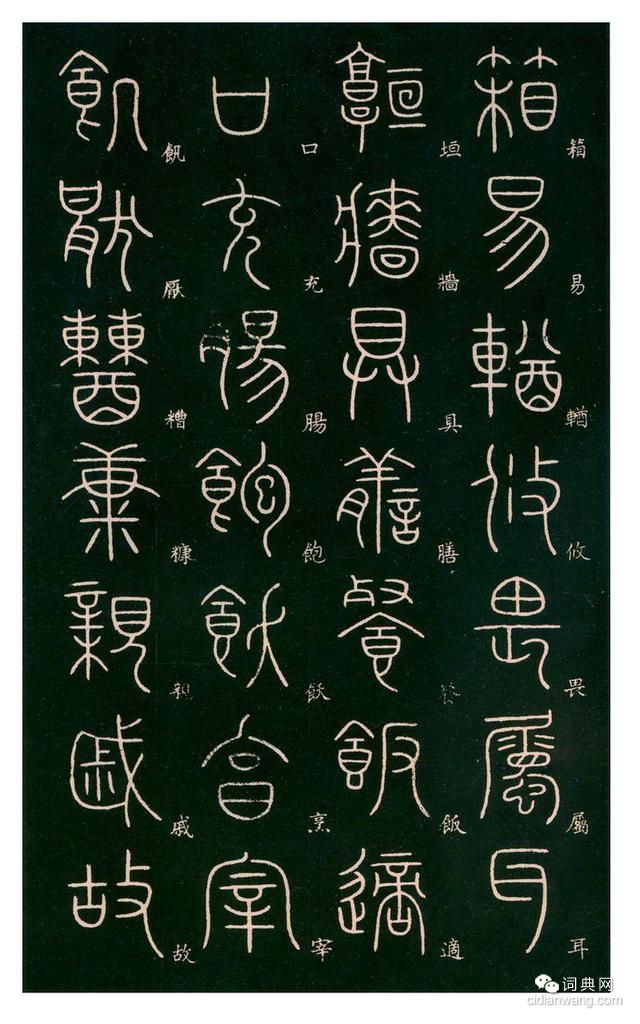 箱易輶攸畏屬耳
垣牆具膳餐飯適
口充腸飽飫烹宰
飢厭糟糠親戚故
词典网
cidianwang.com